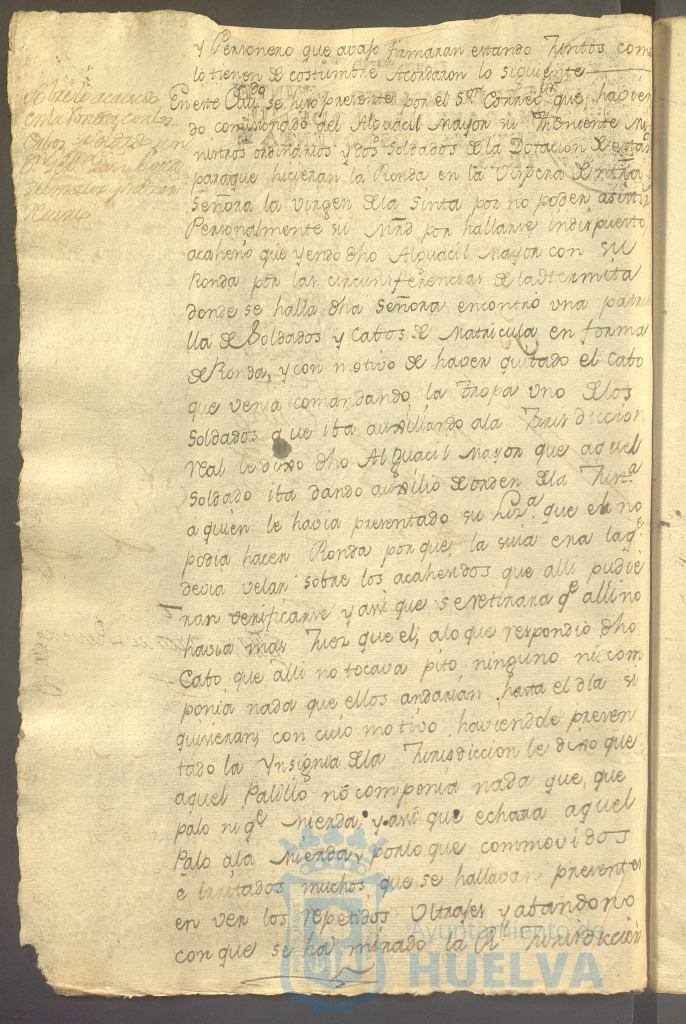 y Personero que avajo firmaran estando Juntos como
lo tienen de costumbre Acordaron lo siguiente
En este Cav.do se hizo presente por el S.or Correg.or que, havien
do comisionado del Alguacil Mayor su Theniente Mi
nistros ordinarios y dos Soldados de la Dotacion de esta
para que hicieran la Ronda en la Vispera de nrã
Señora la Virgen de la Sinta por no poder asistir
Personalmente su Mrd por hallarse indispuesto,
acahecio que yendo dho Alguacil Mayor con su
Ronda por las circunsferencias de la Hermita
donde se halla dha Señora encontró una patru
lla de Soldados y Cabos de Matricula en forma
de Ronda, y con motivo de haver quitado el Cabo
que venia comandando la tropa uno de los
Soldados que iba auxiliando a la Jurisdiccion
real le dixo dho Alguacil Mayor que aquel
Soldado iba dando auxilio de orden de la Just.a
a quien le havia presentado su que el no
podia hacer Ronda porque, la suia era la q.e
devia velar sobre los acahecidos que alli pudie
ran verificarse y assi que se retirara q.e alli no
havia mas Juez que el; a lo que respondio dho
Cabo que alli no tocava pito ninguno ni com
ponia nada que ellos andarian hasta el dia si
quisieran, con cuio motivo, haviendole presen
tado la Ynsignia de la Jurisdiccion le dixo que
aquel Palillo no componia nada que, que
palo ni q.e mierda, y assi que echara aquel
Palo a la mierda, por lo que commovidos
e irritados muchos que se hallavan presentes
en ver los repetidos Ultrajes y abandono
con que se ha mirado la R.l Jurisdiccion
Ayuntamiento de
HUELVA